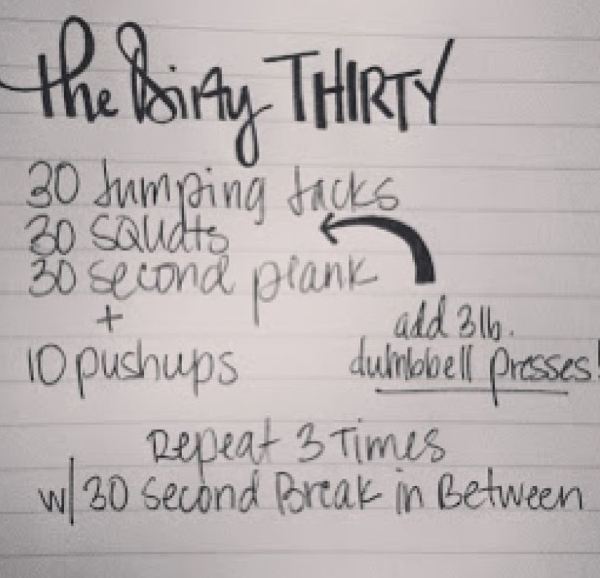 the Dirty THIRTY
30 Jumping Jacks
30 squats
30 second plank
+
10 pushups
add 3lb.
dumbbell presses!
Repeat 3 Times
w/ 30 second Break in Between